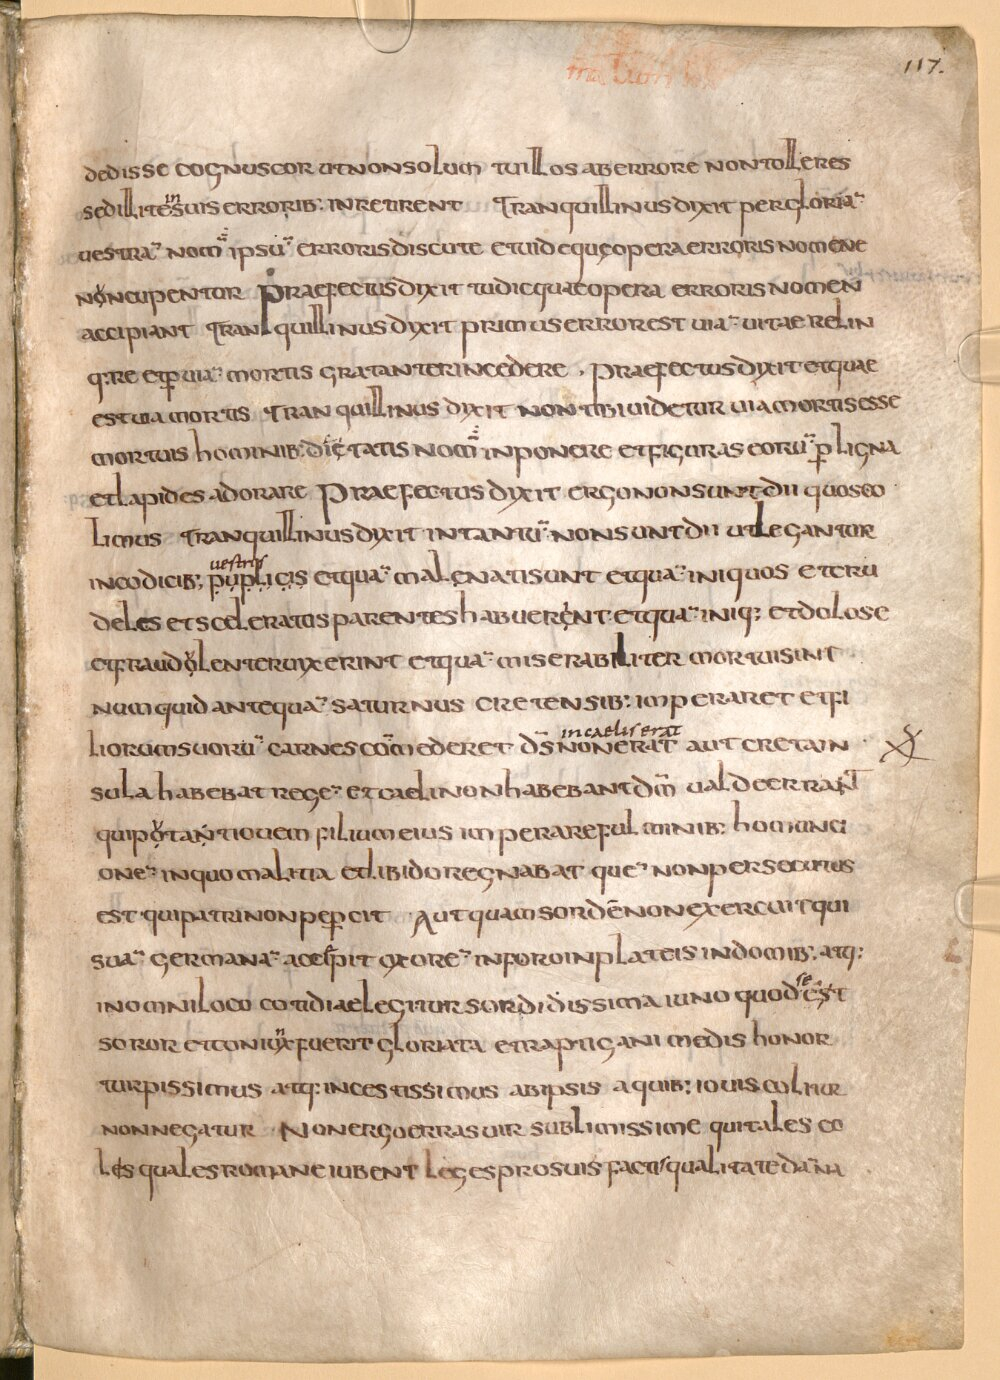 117.
dedisse cognuscor ut non solum tu illos ab errore non tolleres
sed illi te in suis errorib: inretirent Tranquillinus dixit per gloria
uestra nom ipsu erroris discute et uide que opera erroris nomene
noncupentur Praefectus dixit tu dic quae opera erroris nomen
accipiant Tranquillinus dixit primus error est uia uitae relin
q:re et ꝑ uia mortis gratanter incedere . Praefectus dixit et quae
est uia mortis Tranquillinus dixit non tibi uidetur uia mortis esse
mortuis hominib: dietatis nom inponere et figuras eoru ꝑ ligna
et lapides adorare Praefectus dyxit ergo non sunt dii quos co
limus Tranquillinus dixit in tantu non sunt dii ut legantur
in codicib; puplicis uestris et qua male nati sunt et qua iniquos et cru
deles et sceleratos parentes habuerent et qua iniq; et dolose
et fraudolenter uixerint et qua miserabiliter mortui sint
numquid antequa saturnus cretensib: imperaret et fi
liorum suoru carnes comederet d̄s in caelis erat non erat aut creta in
sula habebat rege et caeli non habebant dm̄ ualde errant
qui potant iouem filium eius imperare fulminib: homunci
one in quo malitia et libido regnabat que non persecutus
est qui patri non peꝑcit Aut quam sordē non exercuit qui
sua germana accepit oxore in foro in plateis in domib: atq:
in omni loco cotidiae legitur sordidissima iuno quod se est
soror et coniunx fuerit gloriata et rapti ganimedis honor
turpissimus atq: incestissimus ab ipsis a quib; iouis colitur
non negatur Non ergo erras uir sublimissime qui tales co
les quales romane iubent leges pro suis factis qualitate dana